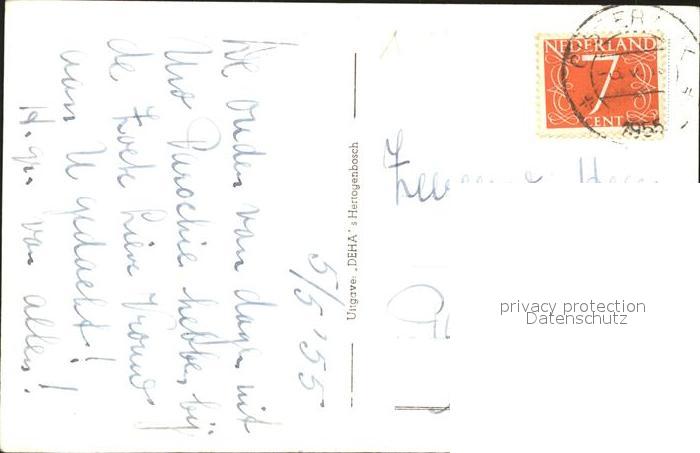 5/5 '55
De ouden van dagen uit
Uw Parochie hebben bij
de Zoete Lieve Vrouw
aan U gedacht!
H. gr. van allen!
Uitgave: „DEHA" 's Hertogenbosch
NEDERLAND
7
CENT
1955
privacy protection
Datenschutz